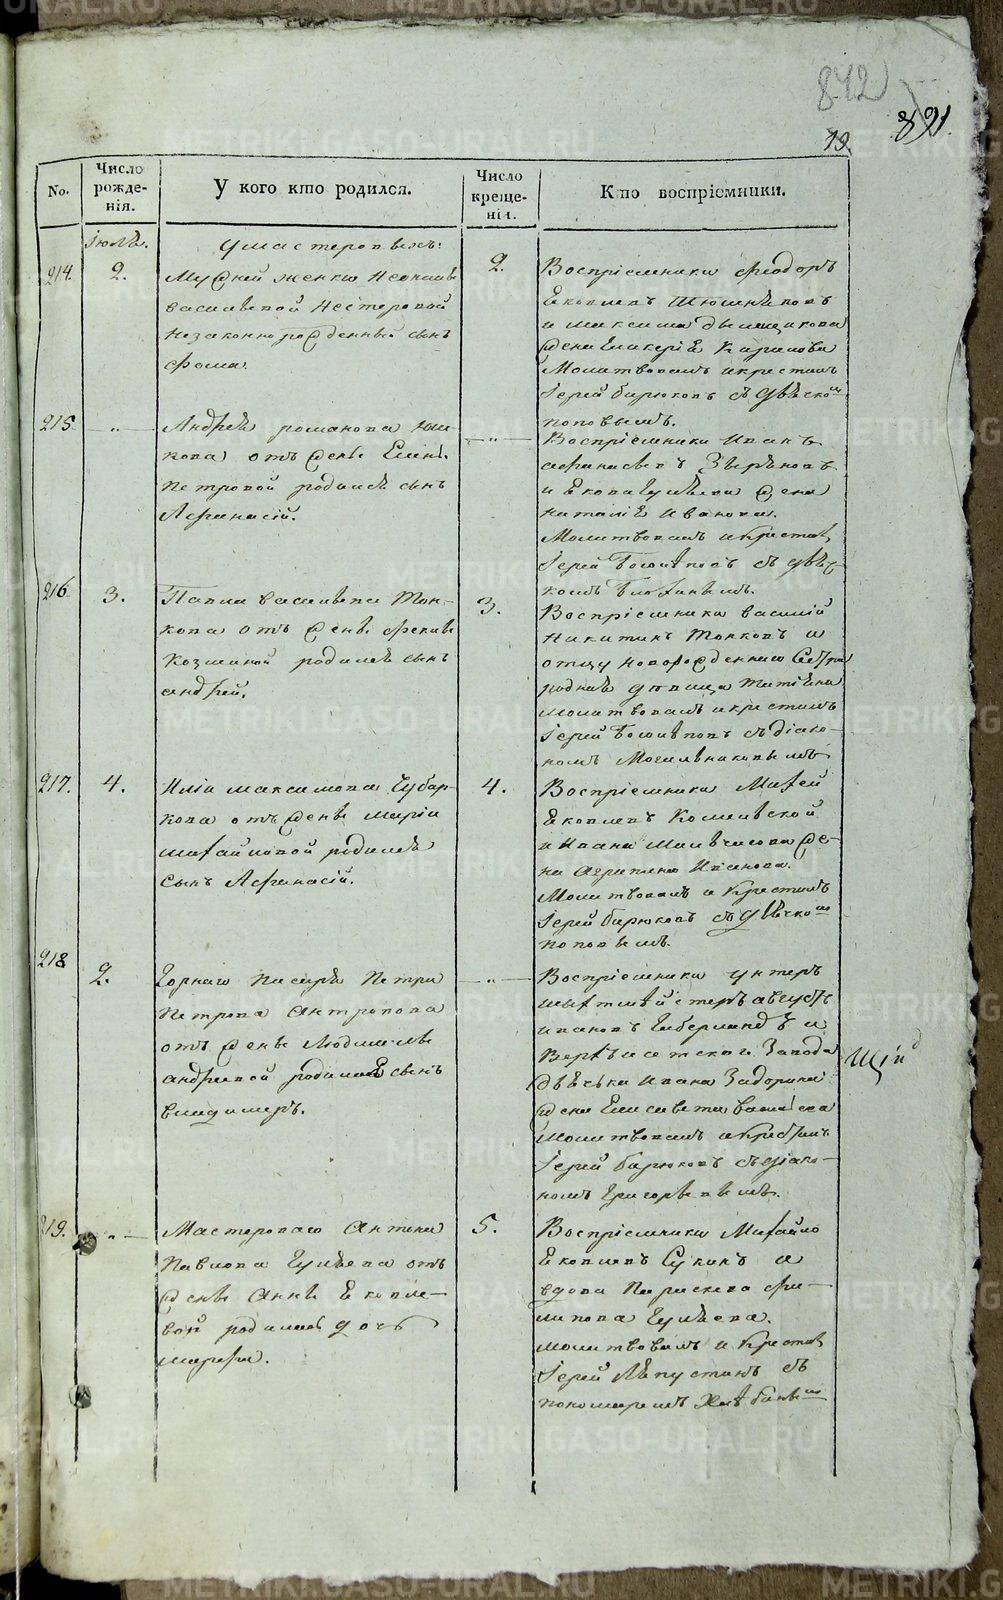 842
891.
79.
No.
Число рожде-нія.
У кого кто родился.
Число креще-нія.
Кто воспріемники.
Іюль.
У мастеровыхъ:
214.
2.
женки
васильевой Нестеровой
незаконнорожденный сынъ
Фома.
2.
Воспріемники Феодоръ
Яковлевъ
и максима
жена Гликерія
Молитвовалъ и крестилъ
Іерей Бирюковъ съ дьячкомъ
поповымъ.
215
-„-
Андрея романова
кова отъ жены Елены
Петровой родился сынъ
Афанасій.
-„-
Воспріемники Иванъ
афанасьевъ Звѣревъ
и Якова Гуляева жена
наталія Иванова.
Молитвовалъ и крестилъ
Іерей съ дьяч-
комъ
216
3.
Павла васильева Тон-
кова отъ жены феклы
козминой родился сынъ
андрей.
3.
Воспріемники василій
Никитинъ Тонковъ и
отцу новорожденнаго сестра
родная дѣвица Татіана
молитвовалъ и крестилъ
Іерей съ діако-
номъ
217.
4.
Иліи максимова Чубар-
кова отъ жены маріи
михайловой родился
сынъ Афанасій.
4.
Воспріемники
Яковлевъ
и Ивана же-
на агрипина Иванова.
Молитвовалъ и крестилъ
Іерей Бирюковъ съ дьячкомъ
поповымъ.
218
2.
Горнаго писаря Петра
Петрова Антропова
отъ жены Людмилы
андреевой родился сынъ
владимеръ.
-„-
Воспріемники унтеръ
августъ
ивановъ и
Верхъ исетского Завода
Ивана
жена Елисавета
молитвовалъ и крестилъ
Іерей Бирюковъ съ діако-
номъ Григорьевымъ.
219.
-„-
Мастероваго Антона
Павлова Гуляева отъ
жены Анны Яковле-
вой родилась дочь
марфа.
5.
Воспріемники Михайло
Яковлевъ Сукинъ и
вдова Параскева фи-
липова Гуляева.
молитвовалъ и крестилъ
Іерей Лапустинъ съ
пономаремъ
METRIKI.GASO-URAL.RU